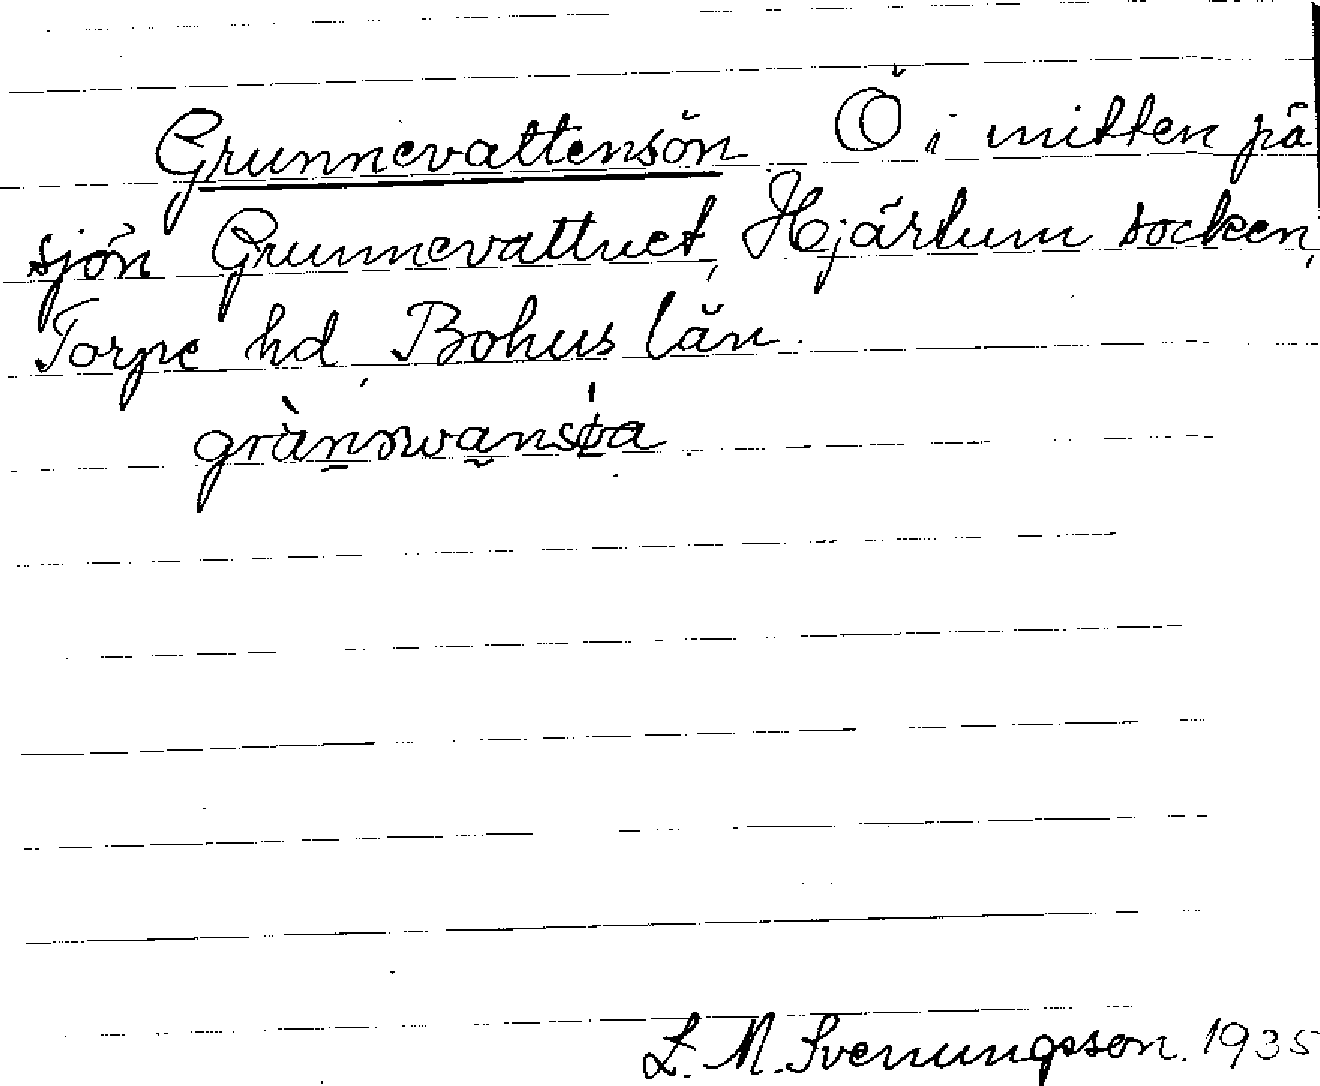 Grunnevattensön Ö i mitten på
sjön Grunnevattnet, Hjärtum socken,
Torpe hd, Bohus län.
grànɘwa̮nsøa
L. M. Svenungsson. 1935